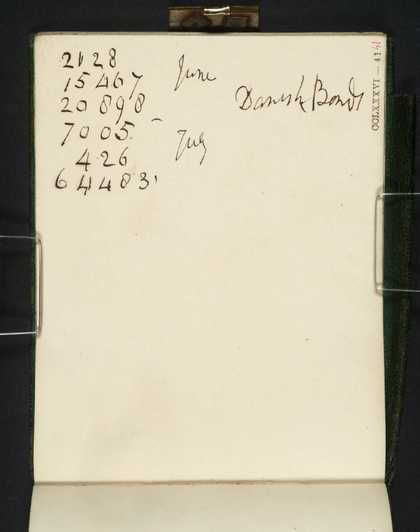 2128
15467 June
20898 Danish Bonds
7005
426 July
64483
CCLXXXVI — 41